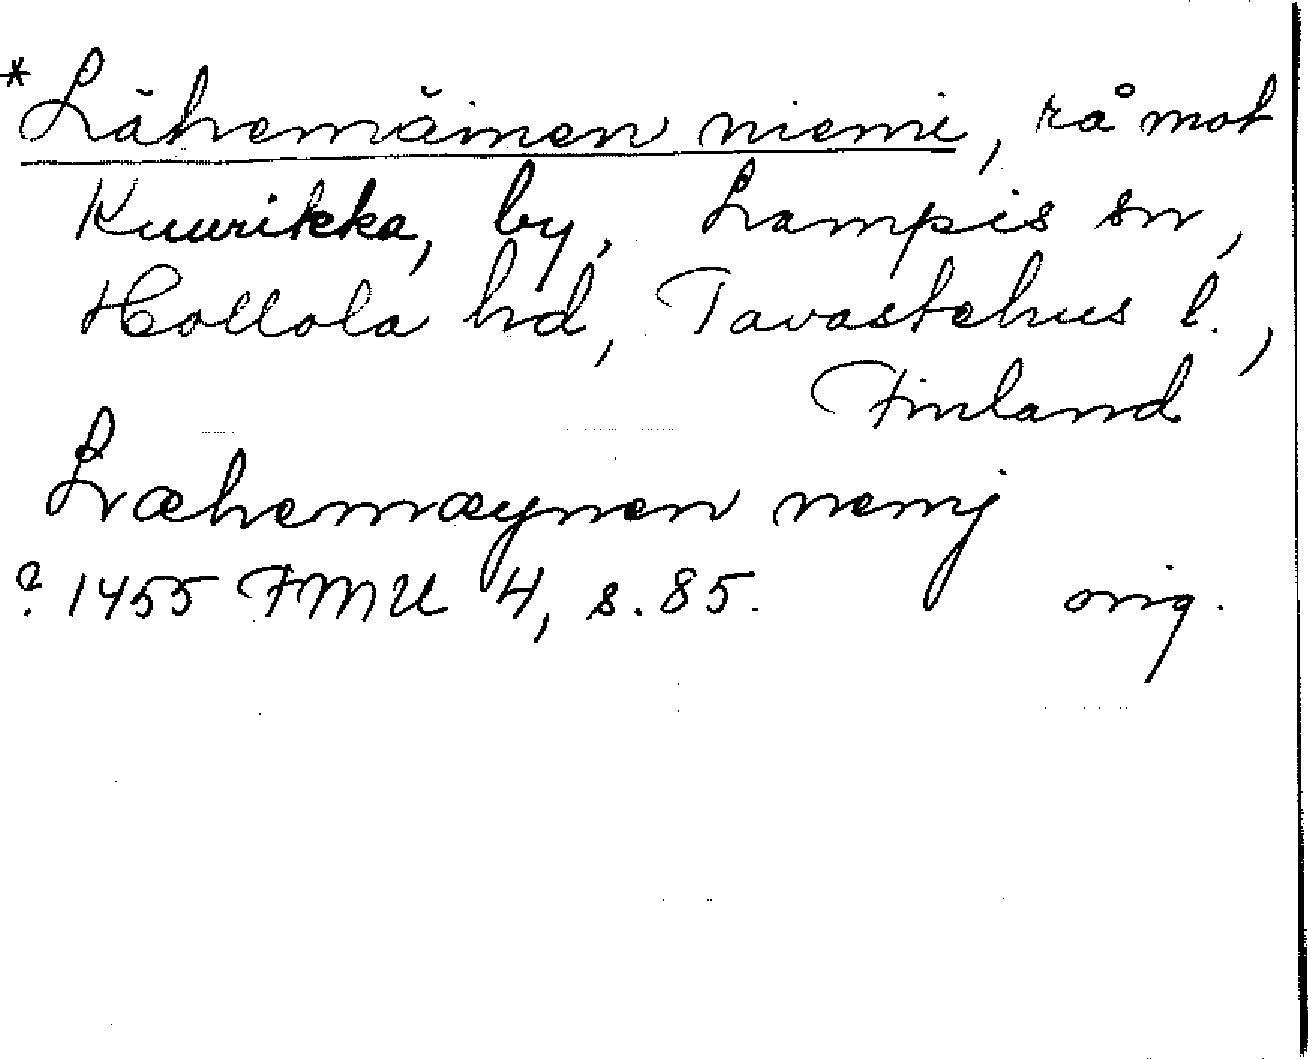 *Lähemäinen niemi, rå mot
Kuurikka, by, Lampis sn,
Hollola hd, Tavastehus l.,
Finland
Læhemæynen nemj
? 1455 FMU 4, s. 85. orig.